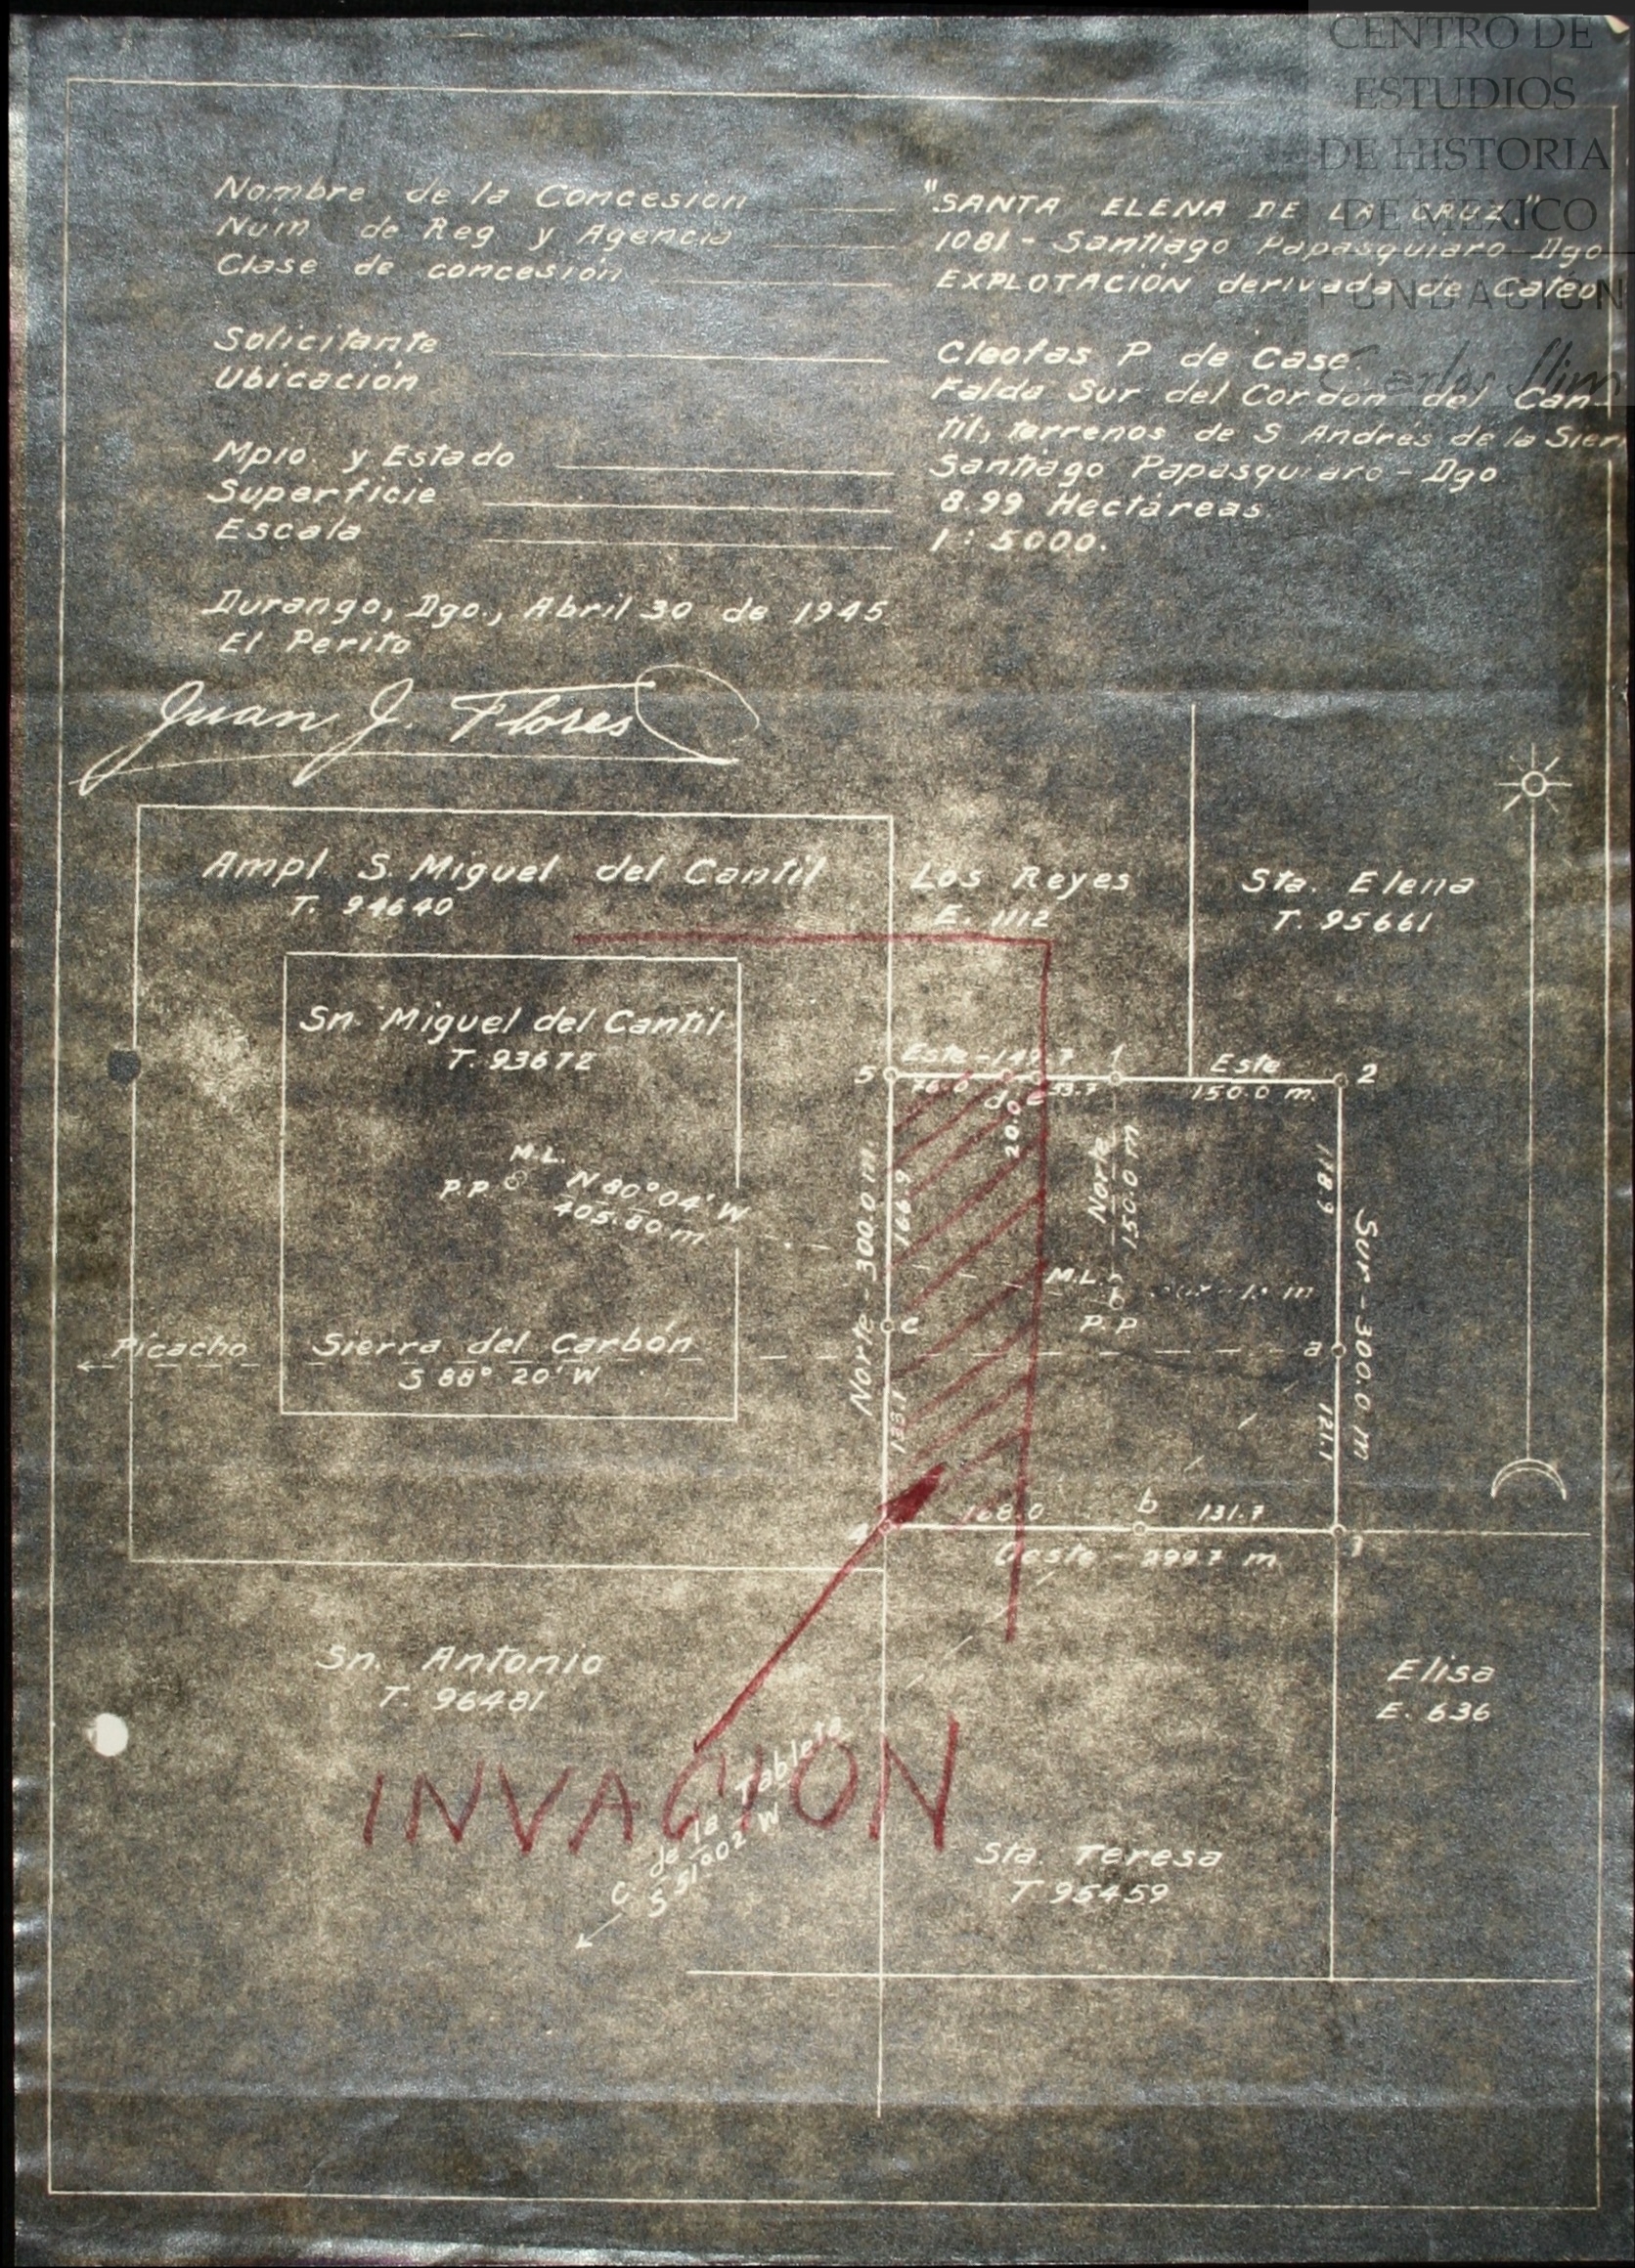 CENTRO DE
ESTUDIOS
DE HISTORIA
DE MÉXICO
FUNDACIÓN
Carlos Slim
Nombre de la Concesión "SANTA ELENA DE LA CRUZ"
Núm de Reg y Agencia 1081 - Santiago Papasquiaro Dgo
Clase de concesión EXPLOTACIÓN derivada de Cateo
Solicitante Cleofas P de Case.
Ubicación Falda Sur del Cordon del Can-
til, terrenos de S Andrés de la Sier
Mpio. y Estado Santiago Papasquiaro - Dgo
Superficie 8.99 Hectáreas
Escala 1 : 5000.
Durango, Dgo., Abril 30 de 1945
El Perito
Juan J. Flores
Ampl. S. Miguel del Cantil
T. 94640
Los Reyes
E. 1112
Sta. Elena
T. 95661
Sn. Miguel del Cantil
T. 93672
5 Este - 149.7 1 Este 2
76.0 53.7 150.0 m.
d e
20.0
Norte
150.0 m
118.9
Sur - 300.0 m
M.L.
P.P.
N 80° 04' W
405.80 m
Norte - 300.0 m.
166.9
M.L.
P.P
c
a
Picacho Sierra del Carbón
S 88° 20' W
133.1
121.1
4 168.0 b 131.7 1
Oeste - 299.7 m
Sn. Antonio
T. 96481
Elisa
E. 636
INVACION
C. de la Tableta
S 51° 02' W
Sta. Teresa
T 95459